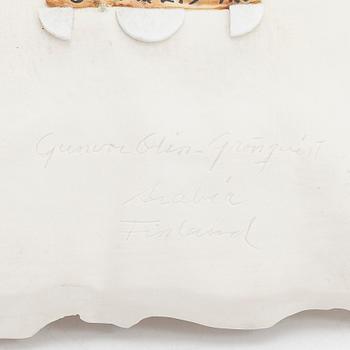 Gunvor Olin-Grönquist
Arabia
Finland